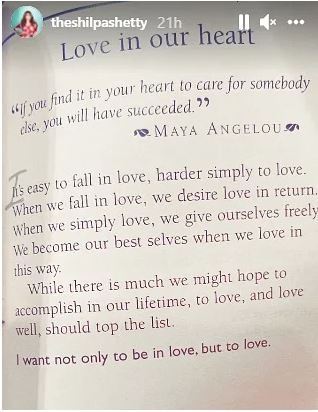 theshilpashetty 21h
Love in our heart
“If you find it in your heart to care for somebody
else, you will have succeeded.”
MAYA ANGELOU
It's easy to fall in love, harder simply to love.
When we fall in love, we desire love in return.
When we simply love, we give ourselves freely
We become our best selves when we love in
this way.
While there is much we might hope to
accomplish in our lifetime, to love, and love
well, should top the list.
I want not only to be in love, but to love.